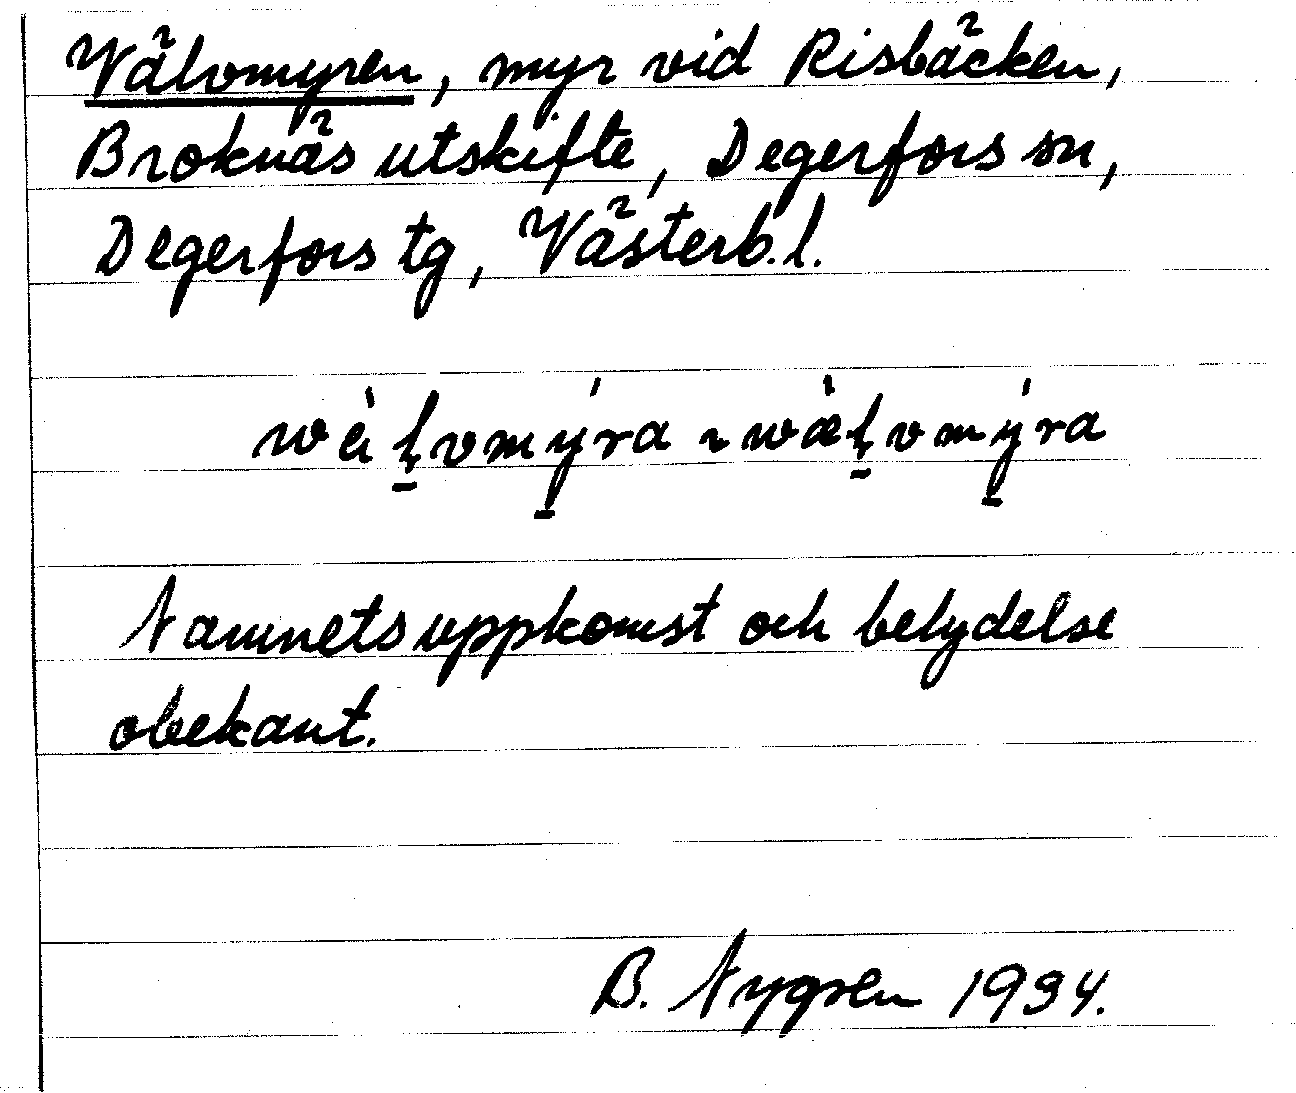 Välvomyren, myr vid Risbäcken,
Broknäs utskifte, Degerfors sn,
Degerfors tg, Västerb.l.
wäl̥vomýra ~ wæ̀l̥vomýra
Namnets uppkomst och betydelse
obekant.
B. Nygren 1934.